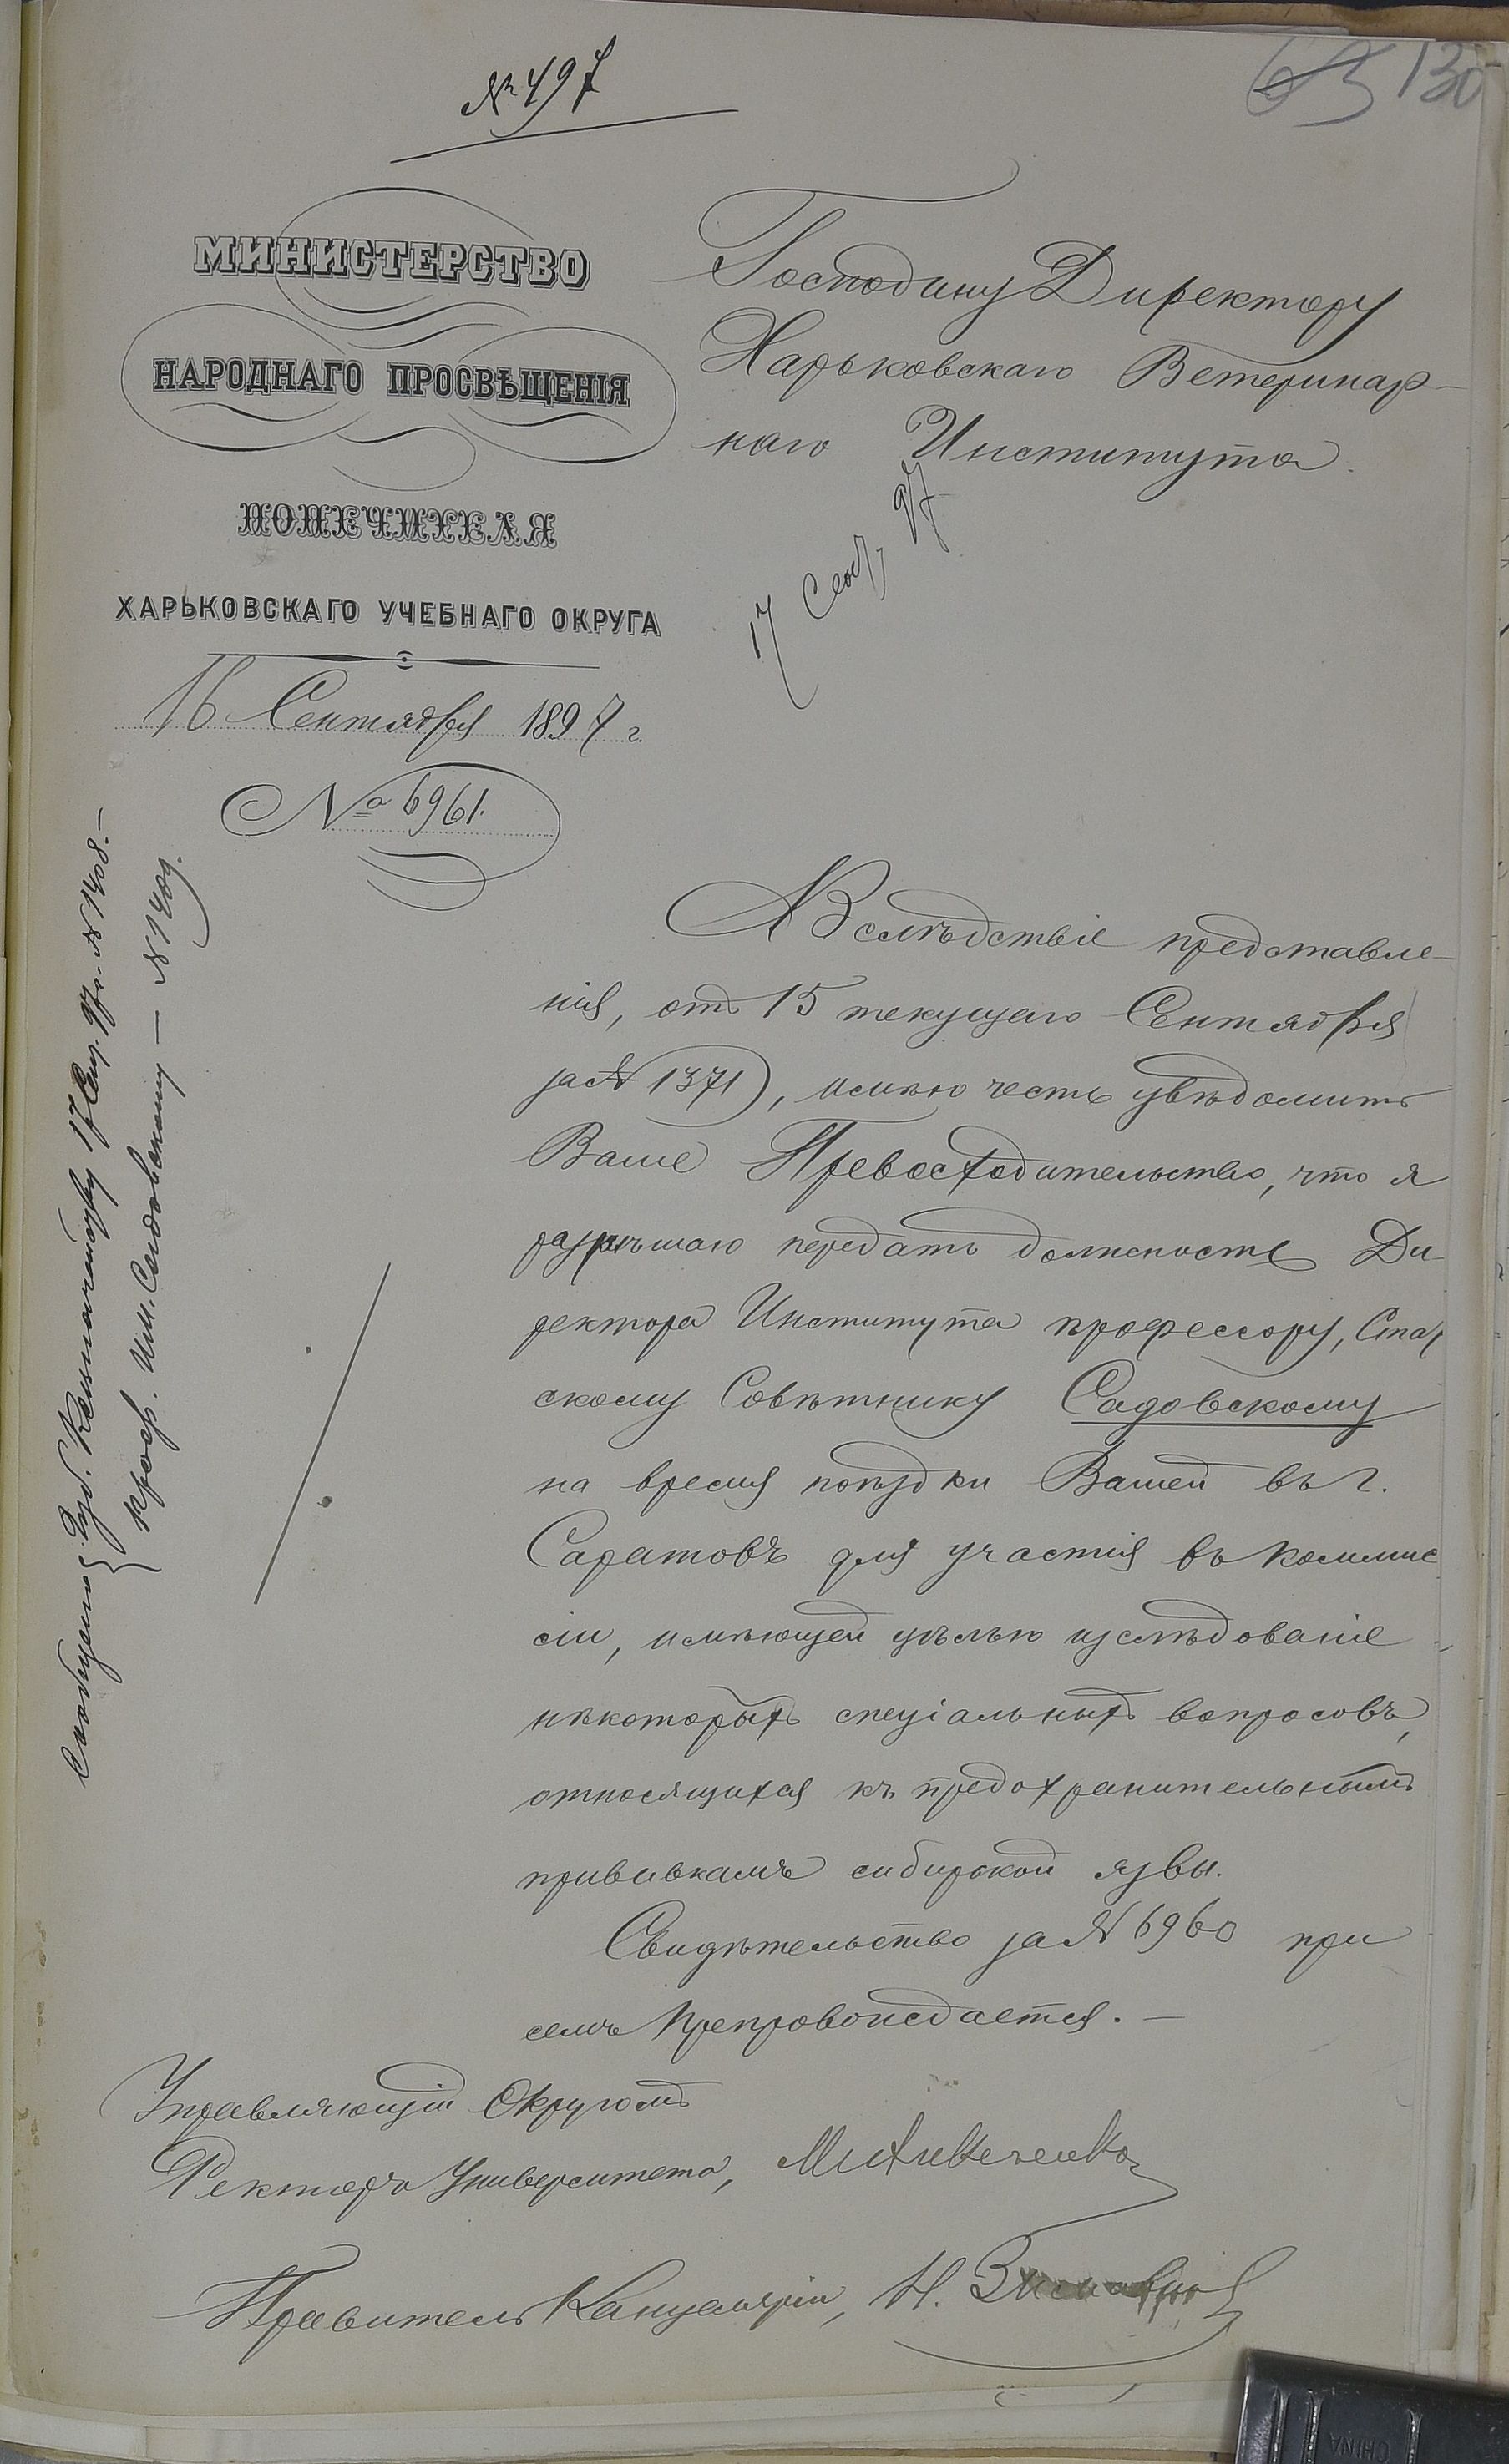 № 497
63 130
МИНИСТЕРСТВО
НАРОДНАГО ПРОСВѢЩЕНІЯ
ПОПЕЧИТЕЛЯ
ХАРЬКОВСКАГО УЧЕБНАГО ОКРУГА
16 Сентября 1897 г.
№ 6961.
Господину Директору
Харьковскаго Ветеринар-
наго Института.
17 Сент. 97
Вслѣдствіе представле-
нія, отъ 15 текущаго Сентября
за № 1371, имѣю честь увѣдомить
Ваше Превосходительство, что я
разрѣшаю передать должность Ди-
ректора Института профессору, Стат
скому Совѣтнику Садовскому
на время поѣздки Вашей въ г.
Саратовъ для участія въ коммис
сіи, имѣющей цѣлью изслѣдованіе
нѣкоторыхъ спеціальныхъ вопросовъ,
относящихся къ предохранительнымъ
прививкамъ сибирской язвы.
Свидѣтельство за № 6960 при
семъ препровождается. —
Управляющій Округомъ
Ректоръ Университета,
Правитель Канцеляріи, Н.
Сообщено Губ. Казначейству 17 Сен. 97 г. № 1408. —
Проф. Им. Садовскому — № 1409.
CHINA